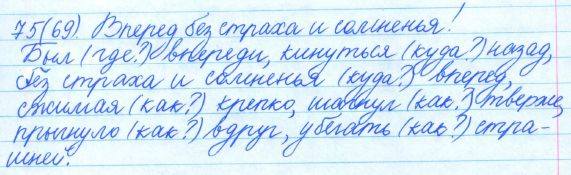 75(69). Вперед без страха и сомненья!
Был (где?) впереди, кинуться (куда?) назад,
без страха и сомненья (куда?) вперед,
сжимая (как?) крепко, шагнул (как?) тверже,
прыгнуло (как?) вдруг, убегать (как?) стра-
шней.